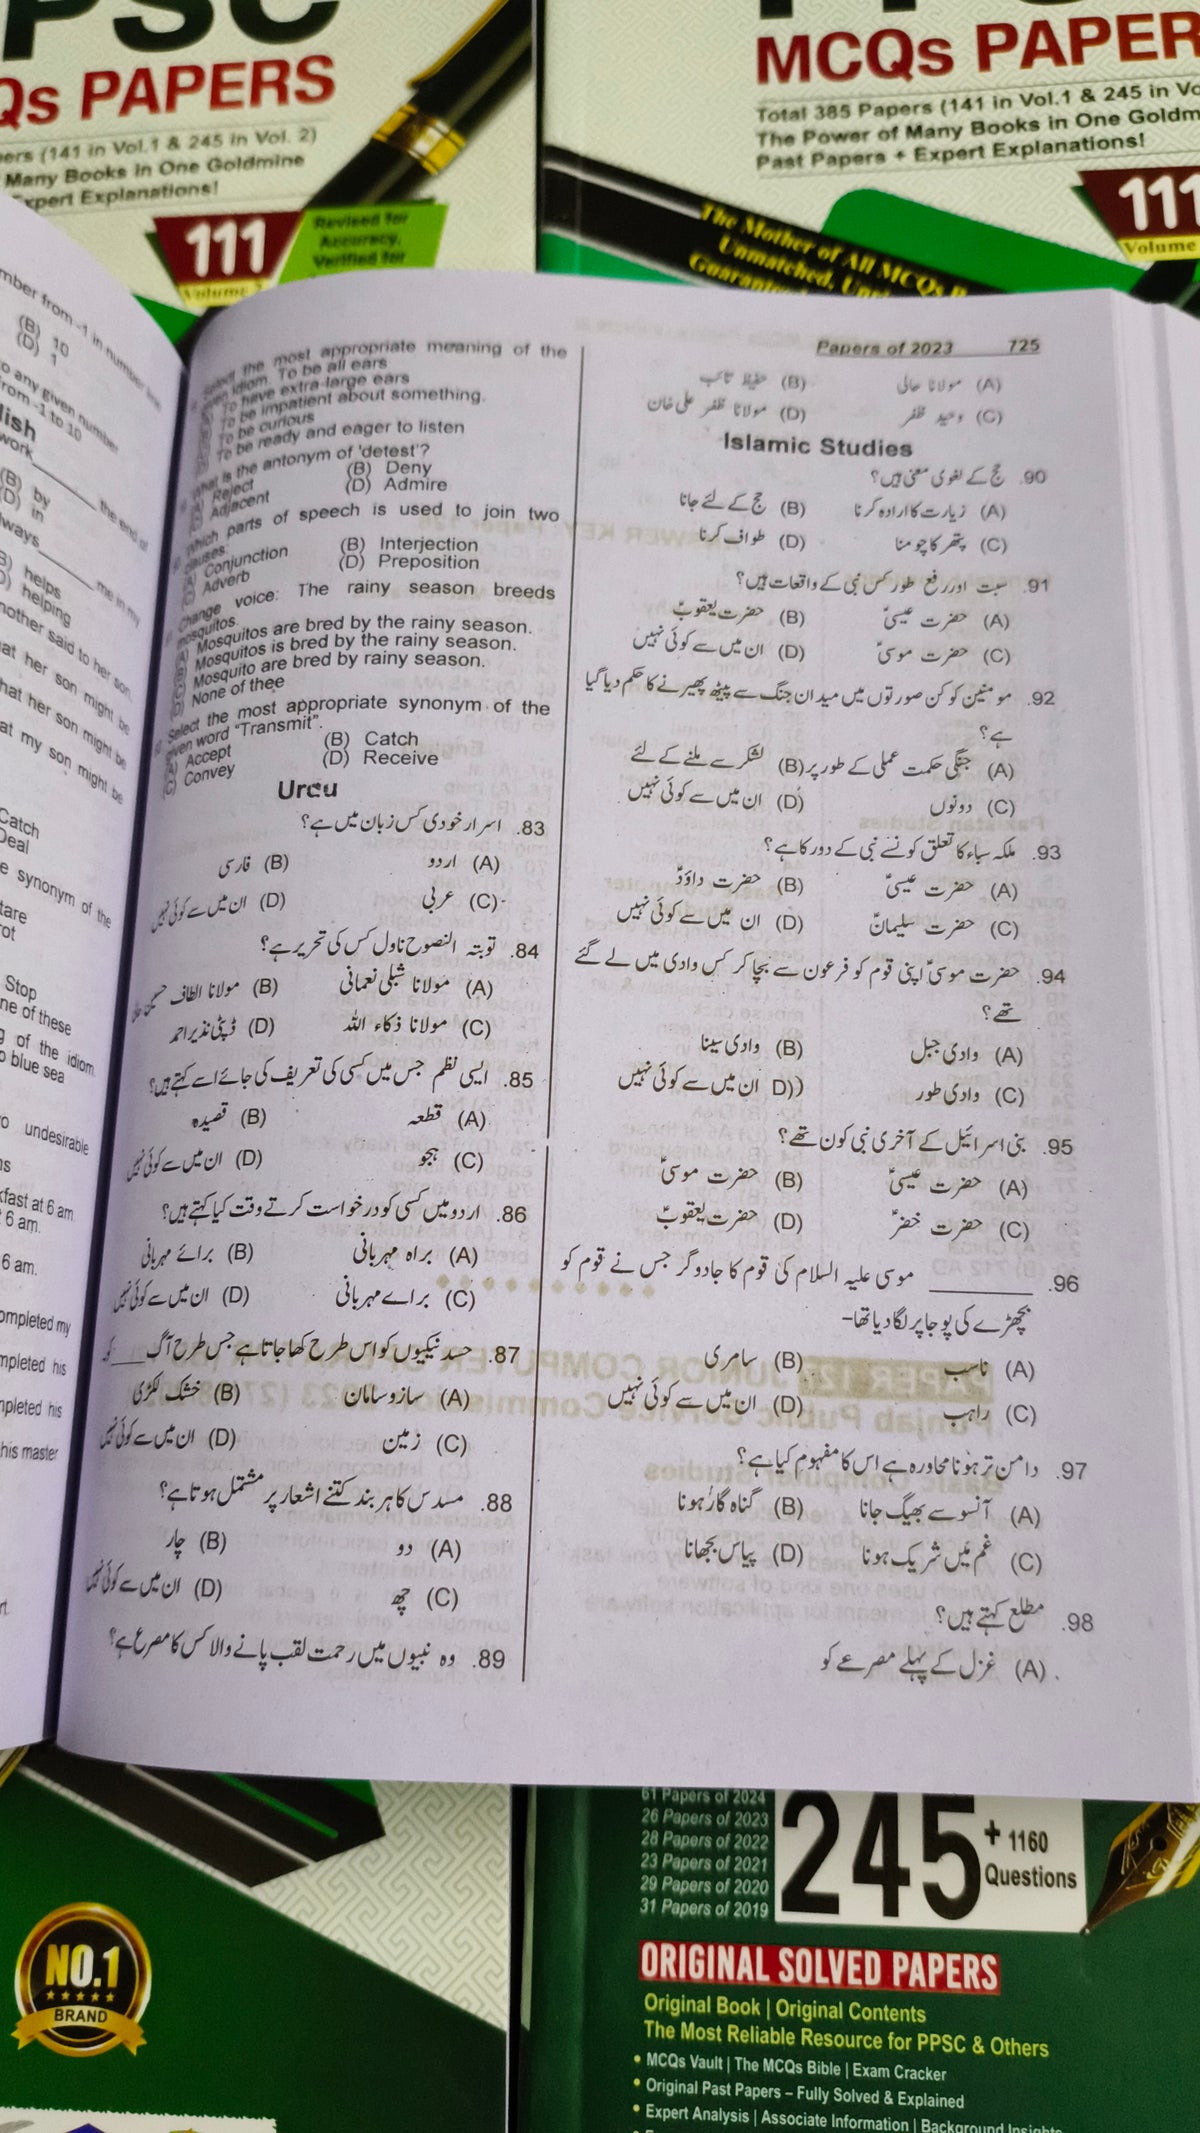 PSC
Qs PAPERS
ers (141 in Vol.1 & 245 in Vol. 2)
Many Books in One Goldmine
Expert Explanations!
111
Volume 2
Revised for
Accuracy,
Verified for
MCQs PAPER
Total 385 Papers (141 in Vol.1 & 245 in Vo
The Power of Many Books in One Goldm
Past Papers + Expert Explanations!
111
Volume
The Mother of All MCQs
Unmatched,
mber from -1 in number
(B) 10
(D) 1
o any given number
from -1 to 10
lish
work
the end of
(B) by
(D) in
lways
me in my
B) helps
D) helping
nother said to her son
at her son might be
hat her son might be
at my son might be
Catch
Deal
e synonym of the
tare
ot
Stop
ne of these
g of the idiom
o blue sea
o undesirable
ns
kfast at 6 am
6 am.
6 am.
ompleted my
mpleted his
mpleted his
his master
Select the most appropriate meaning of the
given idiom. To be all ears
To have extra-large ears
To be impatient about something.
To be curious
To be ready and eager to listen
What is the antonym of 'detest'?
Reject (B) Deny
Adjacent (D) Admire
Which parts of speech is used to join two
clauses:
Conjunction (B) Interjection
Adverb (D) Preposition
Change voice: The rainy season breeds
mosquitos.
Mosquitos are bred by the rainy season.
Mosquitos is bred by the rainy season.
Mosquito are bred by rainy season.
None of thee
Select the most appropriate synonym of the
given word "Transmit".
Accept (B) Catch
Convey (D) Receive
Urdu
83. اسرار خودی کس زبان میں ہے؟
(A) اردو (B) فارسی
(C) عربی (D) ان میں سے کوئی نہیں
84. توبتہ النصوح ناول کس کی تحریر ہے؟
(A) مولانا شبلی نعمانی (B) مولانا الطاف حسین
(C) مولانا ذکاء اللہ (D) ڈپٹی نذیر احمد
85. ایسی نظم جس میں کسی کی تعریف کی جائے اسے کہتے ہیں؟
(A) قطعہ (B) قصیدہ
(C) ہجو (D) ان میں سے کوئی نہیں
86. اردو میں کسی کو درخواست کرتے وقت کیا کہتے ہیں؟
(A) براہ مہربانی (B) برائے مہربانی
(C) براے مہربانی (D) ان میں سے کوئی نہیں
87. حسد نیکیوں کو اس طرح کھا جاتا ہے جس طرح آگ ___ کو
(A) سازو سامان (B) خشک لکڑی
(C) زمین (D) ان میں سے کوئی نہیں
88. مسدس کا ہر بند کتنے اشعار پر مشتمل ہوتا ہے؟
(A) دو (B) چار
(C) چھ (D) ان میں سے کوئی نہیں
89. وہ نبیوں میں رحمت لقب پانے والا کس کا مصرع ہے؟
Papers of 2023 725
(A) مولانا حالی (B) حفیظ تائب
(C) وحید ظفر (D) مولانا ظفر علی خان
Islamic Studies
90. حج کے لغوی معنی ہیں؟
(A) زیارت کا ارادہ کرنا (B) حج کے لئے جانا
(C) پتھر کا چومنا (D) طواف کرنا
91. سبت اور رفع طور کس نبی کے واقعات ہیں؟
(A) حضرت عیسیٰؑ (B) حضرت یعقوبؑ
(C) حضرت موسیٰؑ (D) ان میں سے کوئی نہیں
92. مومنین کو کن صورتوں میں میدان جنگ سے پیٹھ پھیرنے کا حکم دیا گیا
ہے؟
(A) جنگی حکمت عملی کے طور پر (B) لشکر سے ملنے کے لئے
(C) دونوں (D) ان میں سے کوئی نہیں
93. ملکہ سباء کا تعلق کونسے نبی کے دور کا ہے؟
(A) حضرت عیسیٰؑ (B) حضرت داؤدؑ
(C) حضرت سلیمانؑ (D) ان میں سے کوئی نہیں
94. حضرت موسیٰؑ اپنی قوم کو فرعون سے بچا کر کس وادی میں لے گئے
تھے؟
(A) وادی جبل (B) وادی سینا
(C) وادی طور (D) ان میں سے کوئی نہیں
95. بنی اسرائیل کے آخری نبی کون تھے؟
(A) حضرت عیسیٰؑ (B) حضرت موسیٰؑ
(C) حضرت خضرؑ (D) حضرت یعقوبؑ
96. ________ موسی علیہ السلام کی قوم کا جادوگر جس نے قوم کو
بچھڑے کی پوجا پر لگا دیا تھا-
(A) ناسب (B) سامری
(C) راہب (D) ان میں سے کوئی نہیں
97. دامن تر ہونا محاورہ ہے اس کا مفہوم کیا ہے؟
(A) آنسو سے بھیگ جانا (B) گناہ گار ہونا
(C) غم میں شریک ہونا (D) پیاس بجھانا
98. مطلع کہتے ہیں؟
(A) غزل کے پہلے مصرعے کو
NO.1
BRAND
61 Papers of 2024
26 Papers of 2023
28 Papers of 2022
23 Papers of 2021
29 Papers of 2020
31 Papers of 2019
245
+ 1160
Questions
ORIGINAL SOLVED PAPERS
Original Book | Original Contents
The Most Reliable Resource for PPSC & Others
• MCQs Vault | The MCQs Bible | Exam Cracker
• Original Past Papers – Fully Solved & Explained
• Expert Analysis | Associate Information | Background Insights